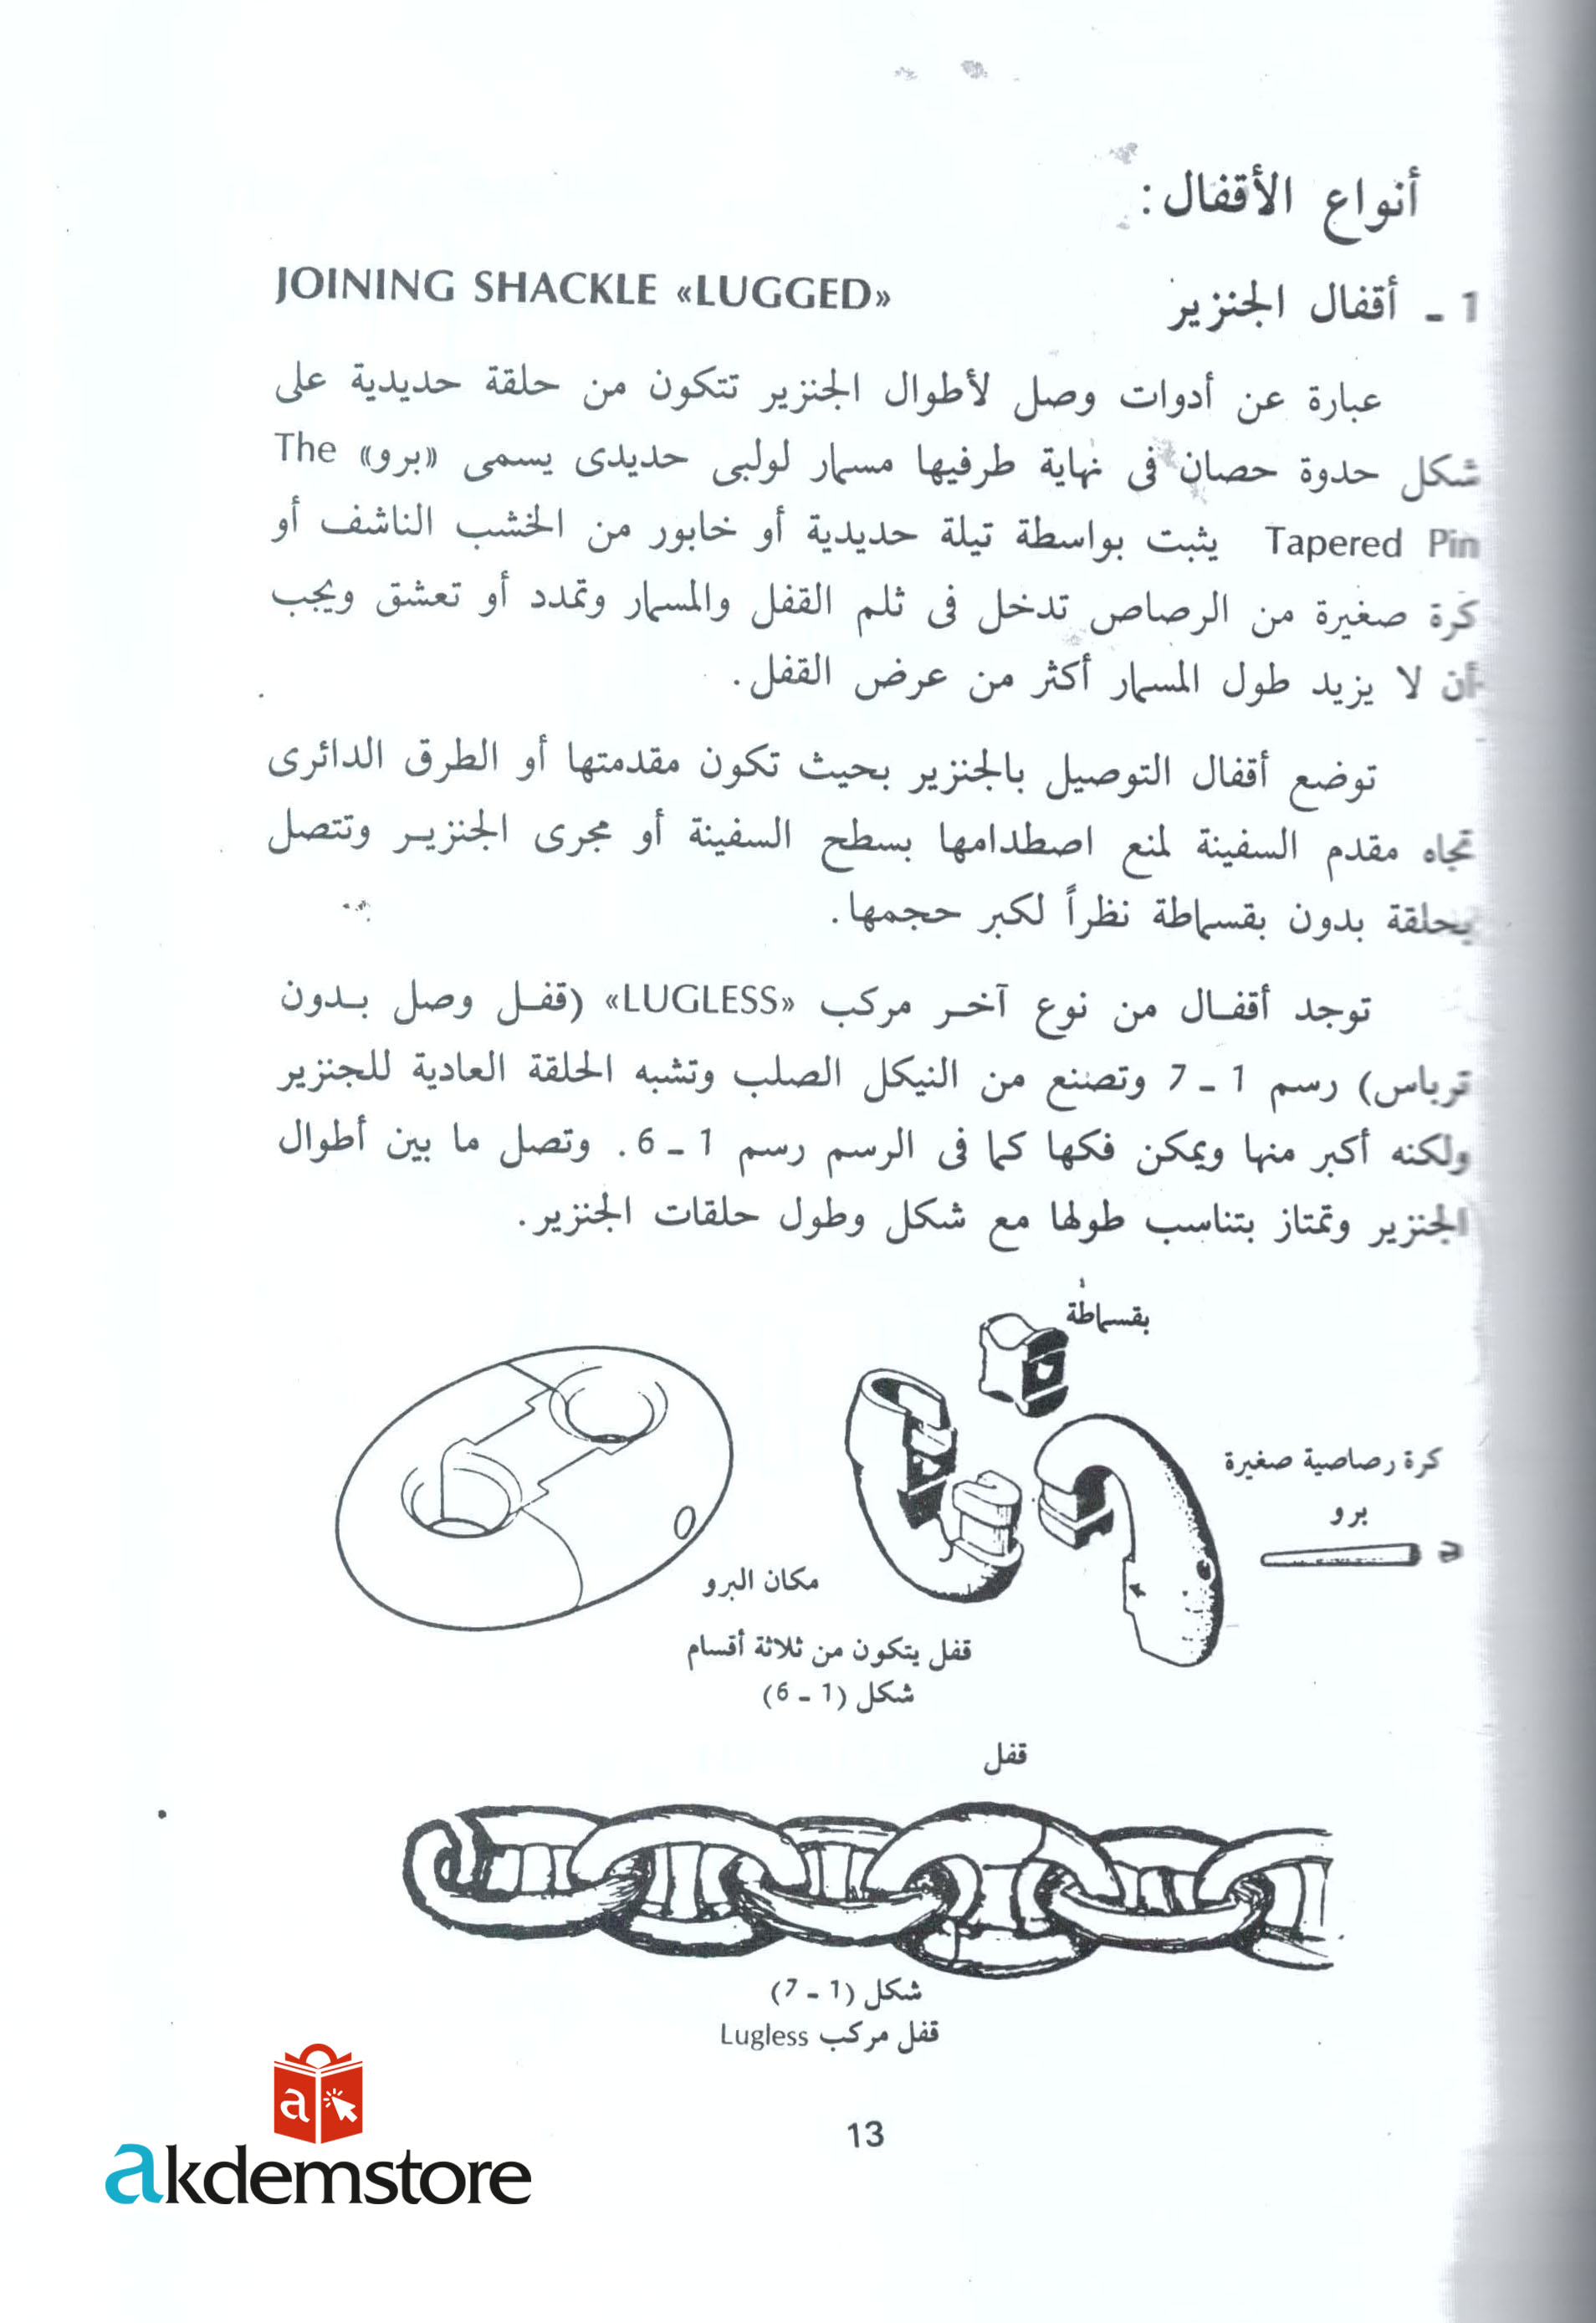 أنواع الأقفال:
1 ـ أقفال الجنزير JOINING SHACKLE «LUGGED»
عبارة عن أدوات وصل لأطوال الجنزير تتكون من حلقة حديدية على
شكل حدوة حصان فى نهاية طرفيها مسمار لولبى حديدى يسمى «برو» The
Tapered Pin يثبت بواسطة تيلة حديدية أو خابور من الخشب الناشف أو
كرة صغيرة من الرصاص تدخل فى ثلم القفل والمسمار وتمدد أو تعشق ويجب
أن لا يزيد طول المسمار أكثر من عرض القفل.
توضع أقفال التوصيل بالجنزير بحيث تكون مقدمتها أو الطرق الدائرى
تجاه مقدم السفينة لمنع اصطدامها بسطح السفينة أو مجرى الجنزير وتتصل
بحلقة بدون بقسماطة نظراً لكبر حجمها.
توجد أقفال من نوع آخر مركب «LUGLESS» (قفل وصل بدون
ترباس) رسم 1 ـ 7 وتصنع من النيكل الصلب وتشبه الحلقة العادية للجنزير
ولكنه أكبر منها ويمكن فكها كما فى الرسم رسم 1 ـ 6. وتصل ما بين أطوال
الجنزير وتمتاز بتناسب طولها مع شكل وطول حلقات الجنزير.
بقسماطة
كرة رصاصية صغيرة
برو
مكان البرو
قفل يتكون من ثلاثة أقسام
شكل (1 ـ 6)
قفل
شكل (1 ـ 7)
قفل مركب Lugless
13
a
akdemstore